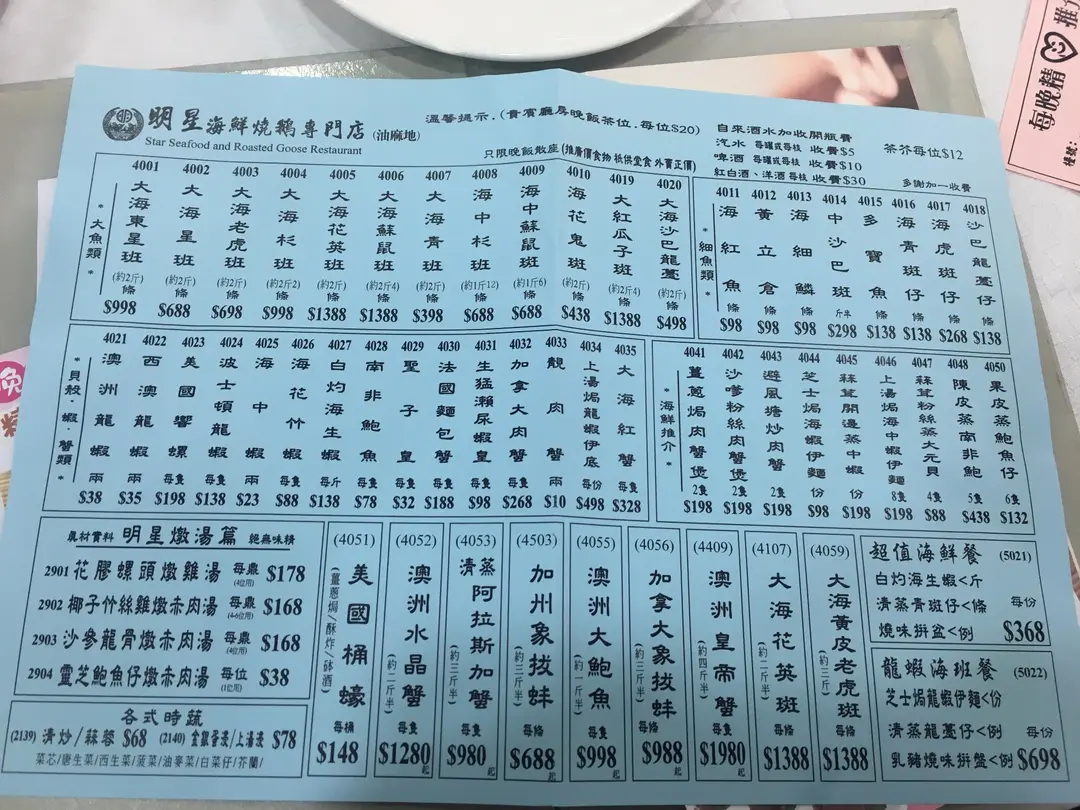 明星海鮮燒鵝專門店 (油麻地)
Star Seafood and Roasted Goose Restaurant
溫馨提示．(貴賓廳房晚飯茶位．每位$20)
只限晚飯散座 (推廣價食物 祇供堂食 外賣正價)
自來酒水加收開瓶費
汽水 每罐或每枝 收費$5
啤酒 每罐或每枝 收費$10
紅白酒、洋酒 每枝 收費$30
茶芥每位$12
多謝加一收費
*大魚類*
4001 大海東星班 (約2斤) 條 $998
4002 大海星班 (約2斤) 條 $688
4003 大海老虎班 (約2斤) 條 $698
4004 大海杉班 (約2斤2) 條 $998
4005 大海花英班 (約2斤) 條 $1388
4006 大海蘇鼠班 (約2斤4) 條 $1388
4007 大海青班 (約2斤) 條 $398
4008 海中杉班 (約1斤12) 條 $688
4009 海中蘇鼠斑 (約1斤6) 條 $688
4010 海花鬼斑 (約2斤) 條 $438
4019 大紅瓜子斑 (約2斤4) 條 $1388
4020 大海沙巴龍躉 (約2斤) 條 $498
*細魚類*
4011 海紅魚 條 $98
4012 黃立倉 條 $98
4013 海細鱗 條 $98
4014 中沙巴斑 斤半 $298
4015 多寶魚 條 $138
4016 海青斑仔 條 $138
4017 海虎斑仔 條 $268
4018 沙巴龍躉仔 條 $138
*貝殼·蝦·蟹類*
4021 澳洲龍蝦 兩 $38
4022 西澳龍蝦 兩 $35
4023 美國響螺 每隻 $198
4024 波士頓龍蝦 每隻 $138
4025 海中蝦 兩 $23
4026 海花竹蝦 每隻 $88
4027 白灼海生蝦 每斤 $138
4028 南非鮑魚 每隻 $78
4029 聖子皇 每隻 $32
4030 法國麵包蟹 每隻 $188
4031 生猛瀨尿蝦皇 每隻 $98
4032 加拿大肉蟹 每隻 $268
4033 靚肉蟹 兩 $10
4034 上湯焗龍蝦伊底 每份 $498
4035 大海紅蟹 每隻 $328
*海鮮推介*
4041 薑蔥焗肉蟹煲 2隻 $198
4042 沙嗲粉絲肉蟹煲 2隻 $198
4043 避風塘炒肉蟹 2隻 $198
4044 芝士焗海蝦伊麵 份 $98
4045 蒜茸開邊蒸中蝦 份 $198
4046 上湯焗海中蝦伊麵 8隻 $198
4047 蒜茸粉絲蒸大元貝 4隻 $88
4048 陳皮蒸南非鮑 5隻 $438
4050 果皮蒸鮑魚仔 6隻 $132
真材實料 明星燉湯篇 絕無味精
2901 花膠螺頭燉雞湯 每鼎 (4位用) $178
2902 椰子竹絲雞燉赤肉湯 每鼎 (4-6位用) $168
2903 沙參龍骨燉赤肉湯 每鼎 (4位用) $168
2904 靈芝鮑魚仔燉赤肉湯 每位 (1位用) $38
各式時蔬
(2139) 清炒/蒜蓉 $68 (2140) 金銀蛋浸/上湯浸 $78
菜芯/唐生菜/西生菜/菠菜/油麥菜/白菜仔/芥蘭/
(4051) 美國桶蠔 (薑蔥焗/酥炸/砵酒) 每桶 $148
(4052) 澳洲水晶蟹 (約二斤半) 每隻 $1280起
(4053) 清蒸阿拉斯加蟹 (約三斤半) 每隻 $980起
(4503) 加州象拔蚌 (約三斤半) 每條 $688起
(4055) 澳洲大鮑魚 (約一斤半) 每隻 $998起
(4056) 加拿大象拔蚌 (約三斤半) 每條 $988起
(4409) 澳洲皇帝蟹 (約四斤半) 每隻 $1980起
(4107) 大海花英斑 (約二斤半) 每條 $1388
(4059) 大海黃皮老虎斑 (約三斤) 每條 $1388
超值海鮮餐 (5021)
白灼海生蝦<斤
清蒸青斑仔<條 每份
燒味拼盆<例 $368
龍蝦海班餐 (5022)
芝士焗龍蝦伊麵<份
清蒸龍躉仔<例 每份
乳豬燒味拼盤<例 $698
每晚精
推